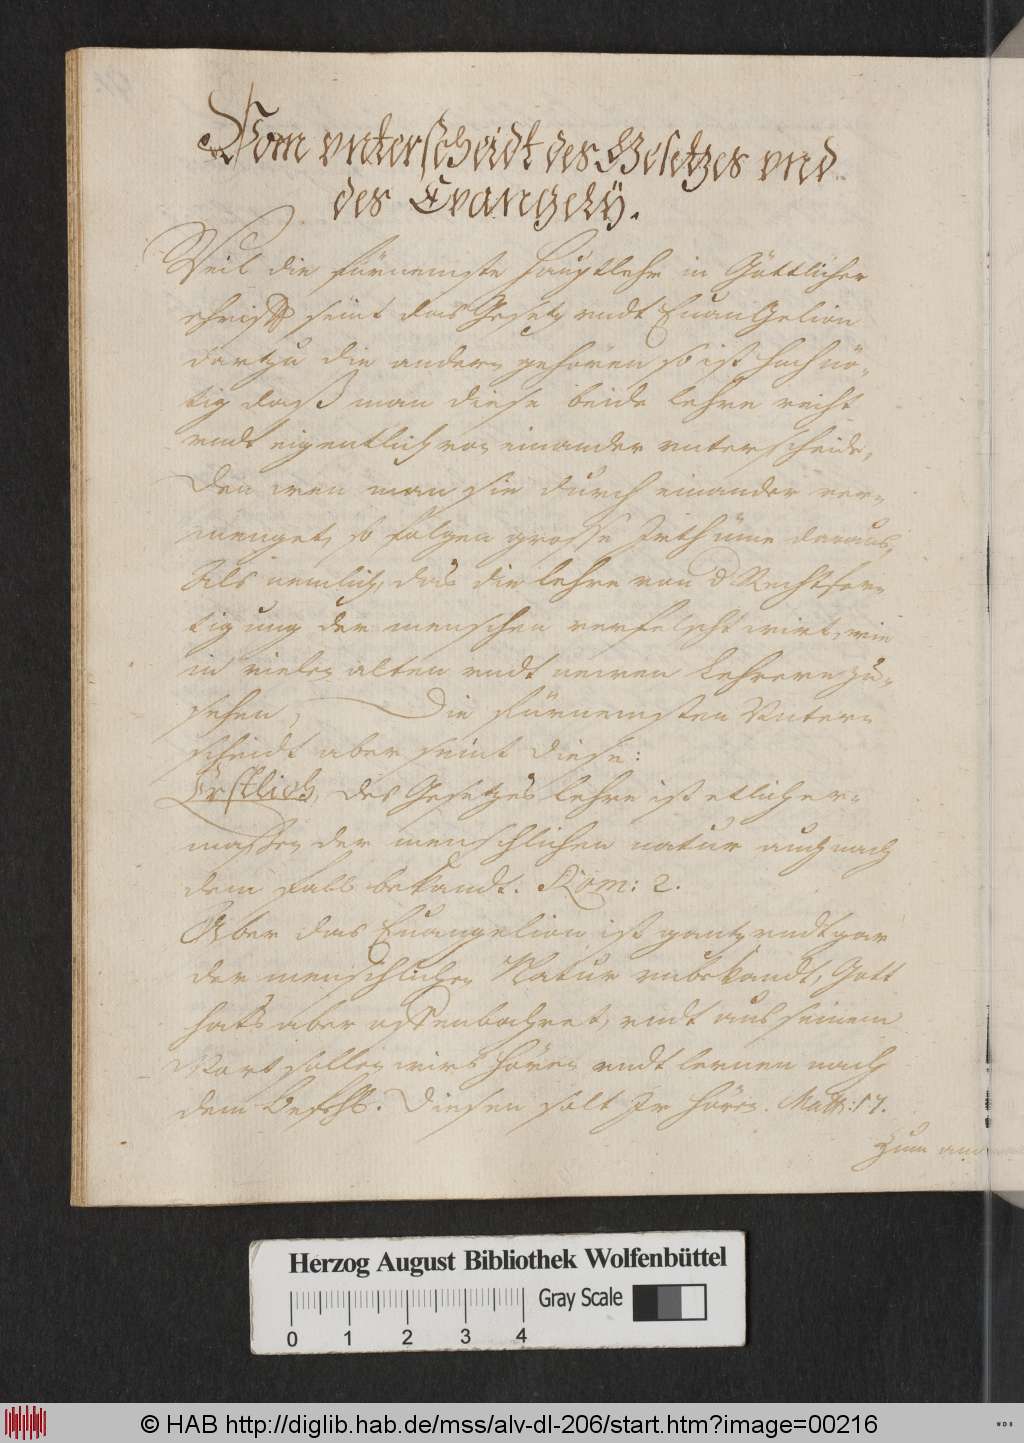 Vom vnterscheidt des Gesetzes vnd
des Evangelÿ.
Weil die fürnemste hauptlehr in Göttlicher
schrifft seint das Gesetz undt Euangelion
dartzu die andern gehören so ist hoch nö-
tig daß man diese beide lehre recht
undt eigentlich von einander unterscheide,
Den wen man sie durch einander ver-
menget, so folgen grosse Irthüme daraus,
Als nemlich das die lehre von d Rechtfer-
tigung der menschen verfelscht wirt, wie
in vielen alten undt newen Lehrern zu-
sehen, Die fürnemsten Unter-
scheidt aber seint diese:
Erstlich, des Gesetzes lehre ist etlicher-
massen der menschlichen natur auch nach
dem fall bekandt. Rom: 2.
Aber das Euangelion ist gantz undt gar
der menschlichen Natur unbekandt, Gott
hats aber offenbahret, undt aus seinem
Wort sollen wirs hören undt lernen nach
dem Befehl. Diesen solt Ir hören. Matth: 17.
Zum an
Herzog August Bibliothek Wolfenbüttel
Gray Scale
0 1 2 3 4
© HAB http://diglib.hab.de/mss/alv-dl-206/start.htm?image=00216